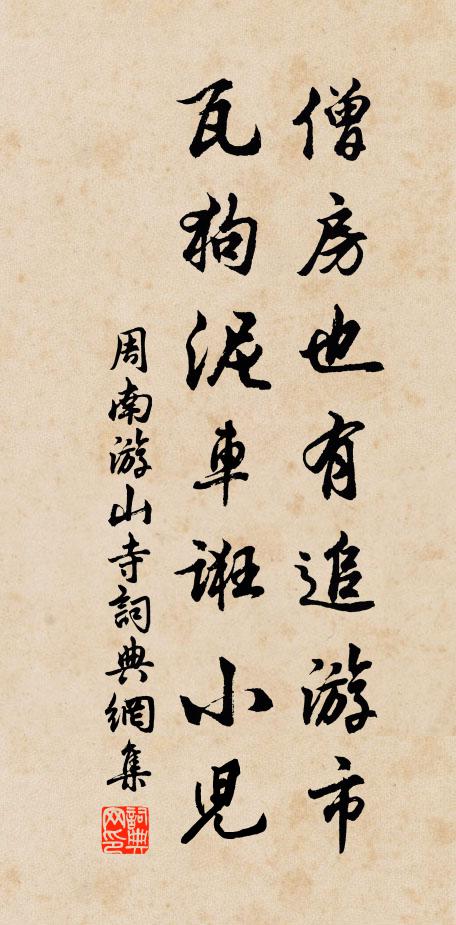 僧房也有追游市
瓦狗泥車誑小児
周南游山寺詞典網集
詞典網印